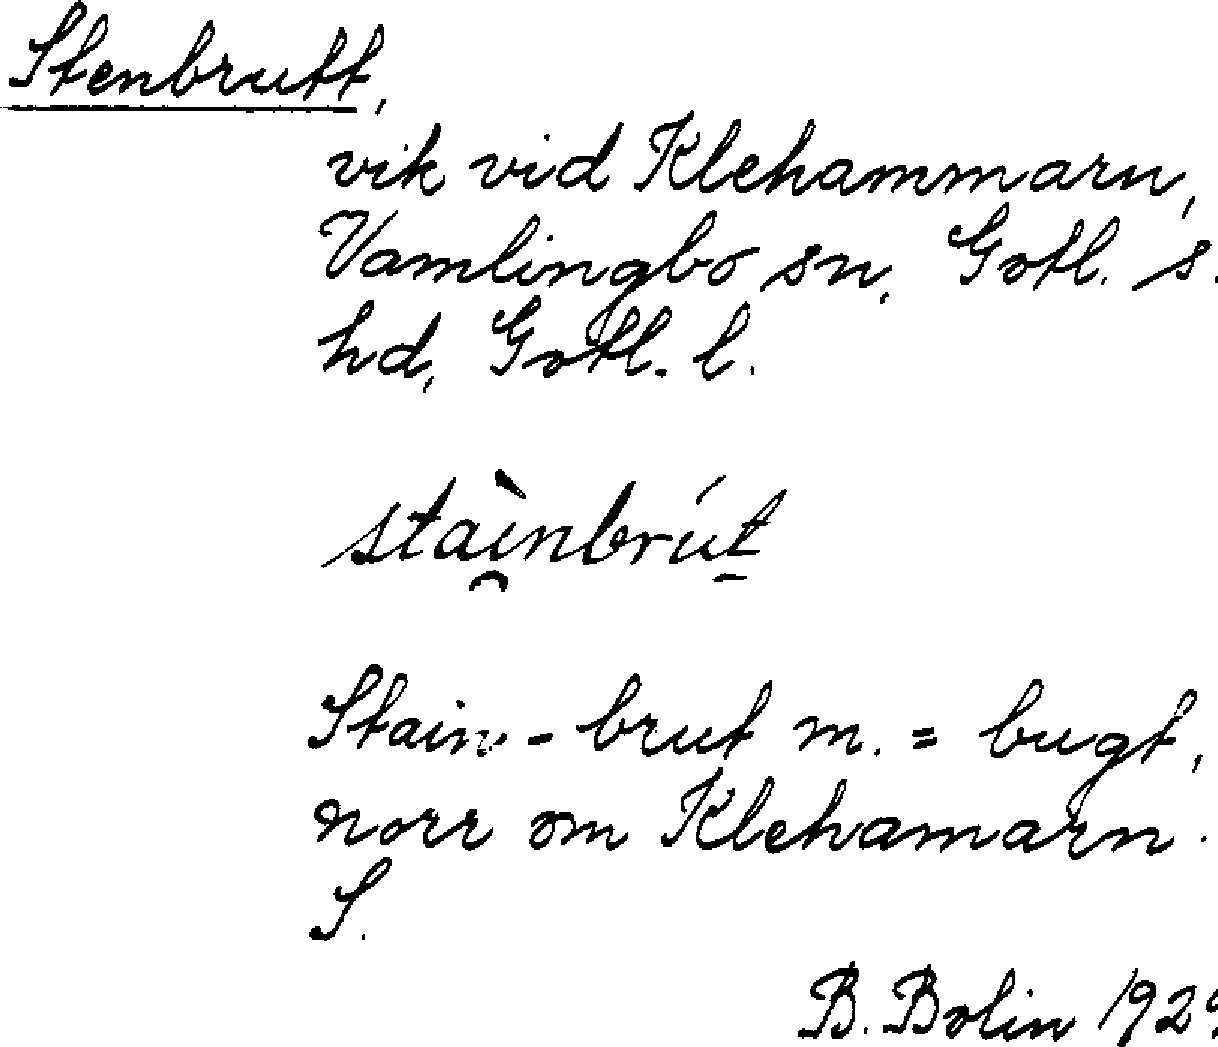 Stenbrutt,
vik vid Klehammarn,
Vamlingbo sn, Gotl. s.
hd, Gotl. l.
staì̯nbrút̠
Stain-brut m. = bugt,
norr om Klehamarn.
S.
B. Bolin